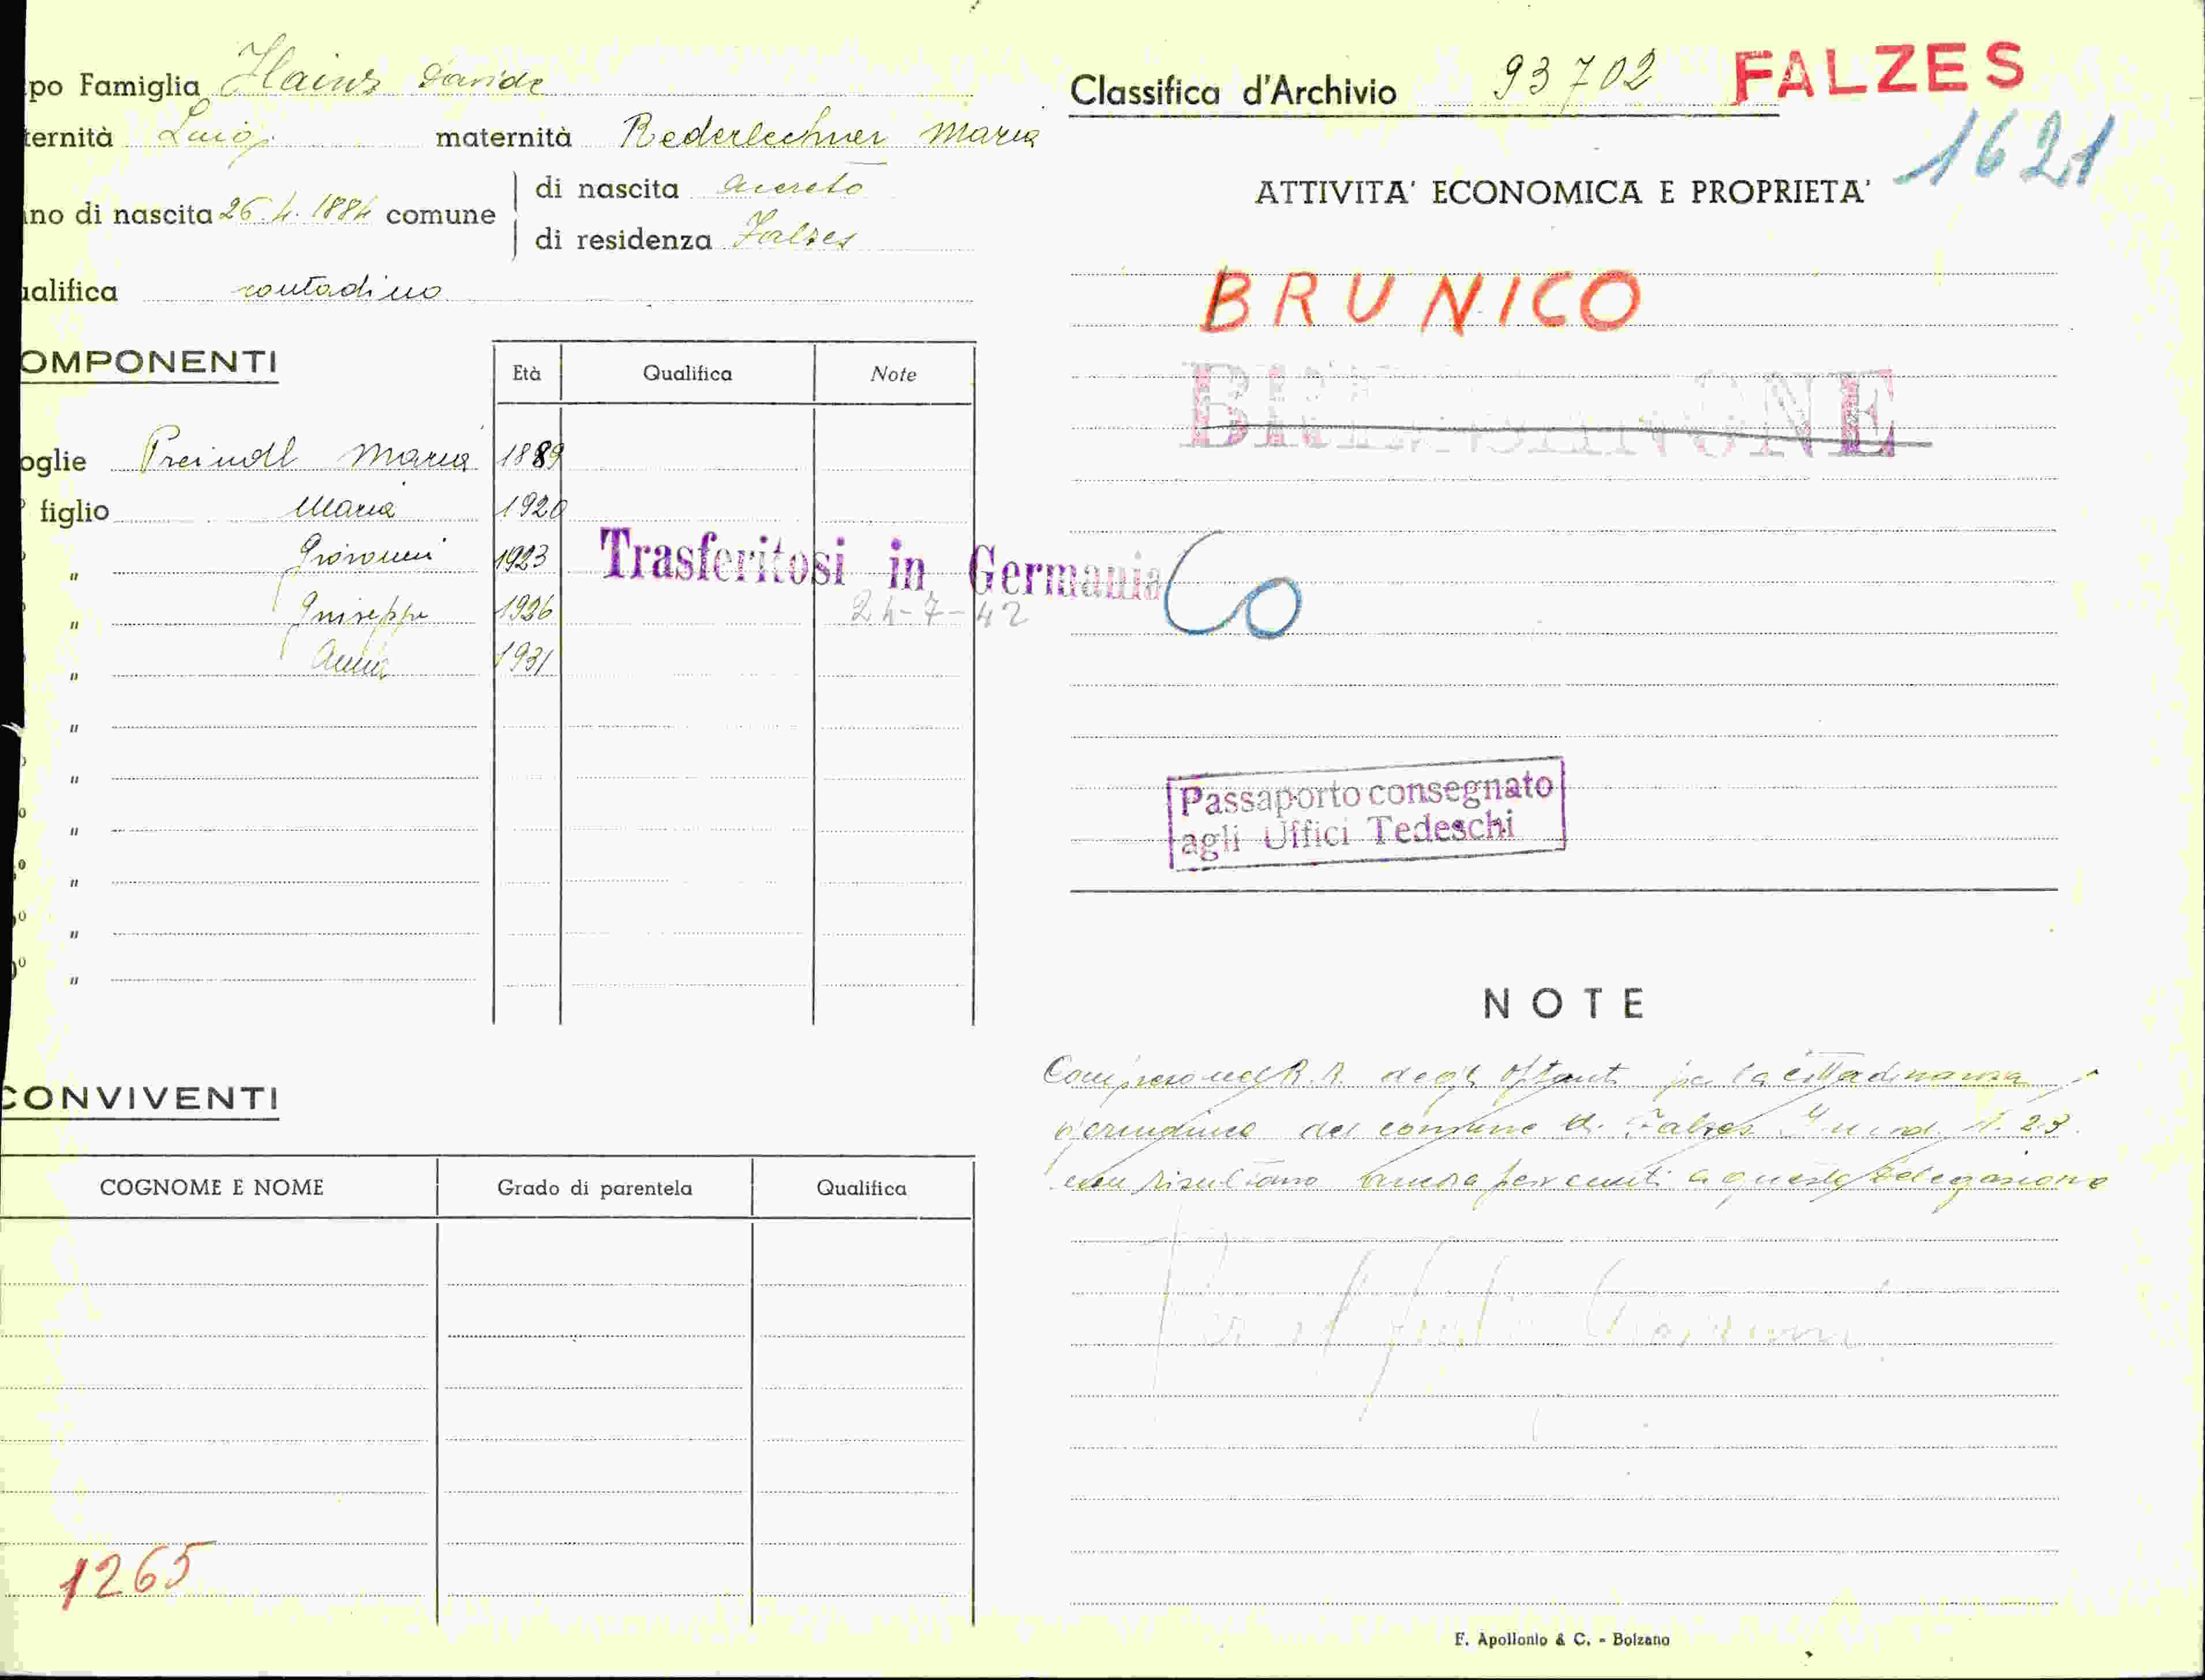 po Famiglia Hainz Davide
ternità Luigi maternità Rederlechner Maria
no di nascita 26.4.1884 comune
di nascita Acereto
di residenza Falzes
alifica contadino
OMPONENTI
Età Qualifica Note
oglie Preindl Maria 1889
figlio Maria 1920
" Giovanni 1923
" Giuseppe 1926
" Anna 1931
"
"
"
"
"
"
Trasferitosi in Germania
24-7-42
CONVIVENTI
COGNOME E NOME Grado di parentela Qualifica
1265
Classifica d'Archivio 93702 FALZES
1621
ATTIVITA' ECONOMICA E PROPRIETA'
BRUNICO
BRESSANONE
Co
Passaporto consegnato
agli Uffici Tedeschi
NOTE
Compreso nel R.R. degli optanti per la cittadinanza
germanica del comune di Falzes N. 23.
non risultano ancora pervenuti a questa Delegazione
F. Apollonio & C. - Bolzano